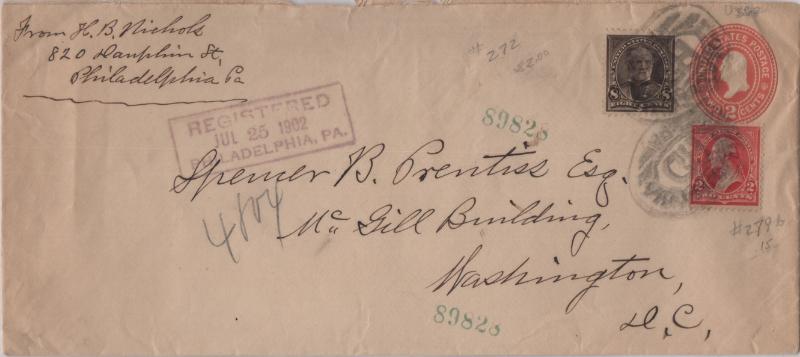 From H. B. Nichols
820 Dauphin St,
Philadelphia Pa
REGISTERED
JUL 25 1902
PHILADELPHIA, PA.
# 272
$2.00
UNITED STATES POSTAGE
TWO 2 CENTS
8 EIGHT CENTS 8
2 TWO CENTS 2
89828
Spencer B. Prentiss Esq.
Mc Gill Building,
Washington,
D.C.,
4804
89828
#279b
15-